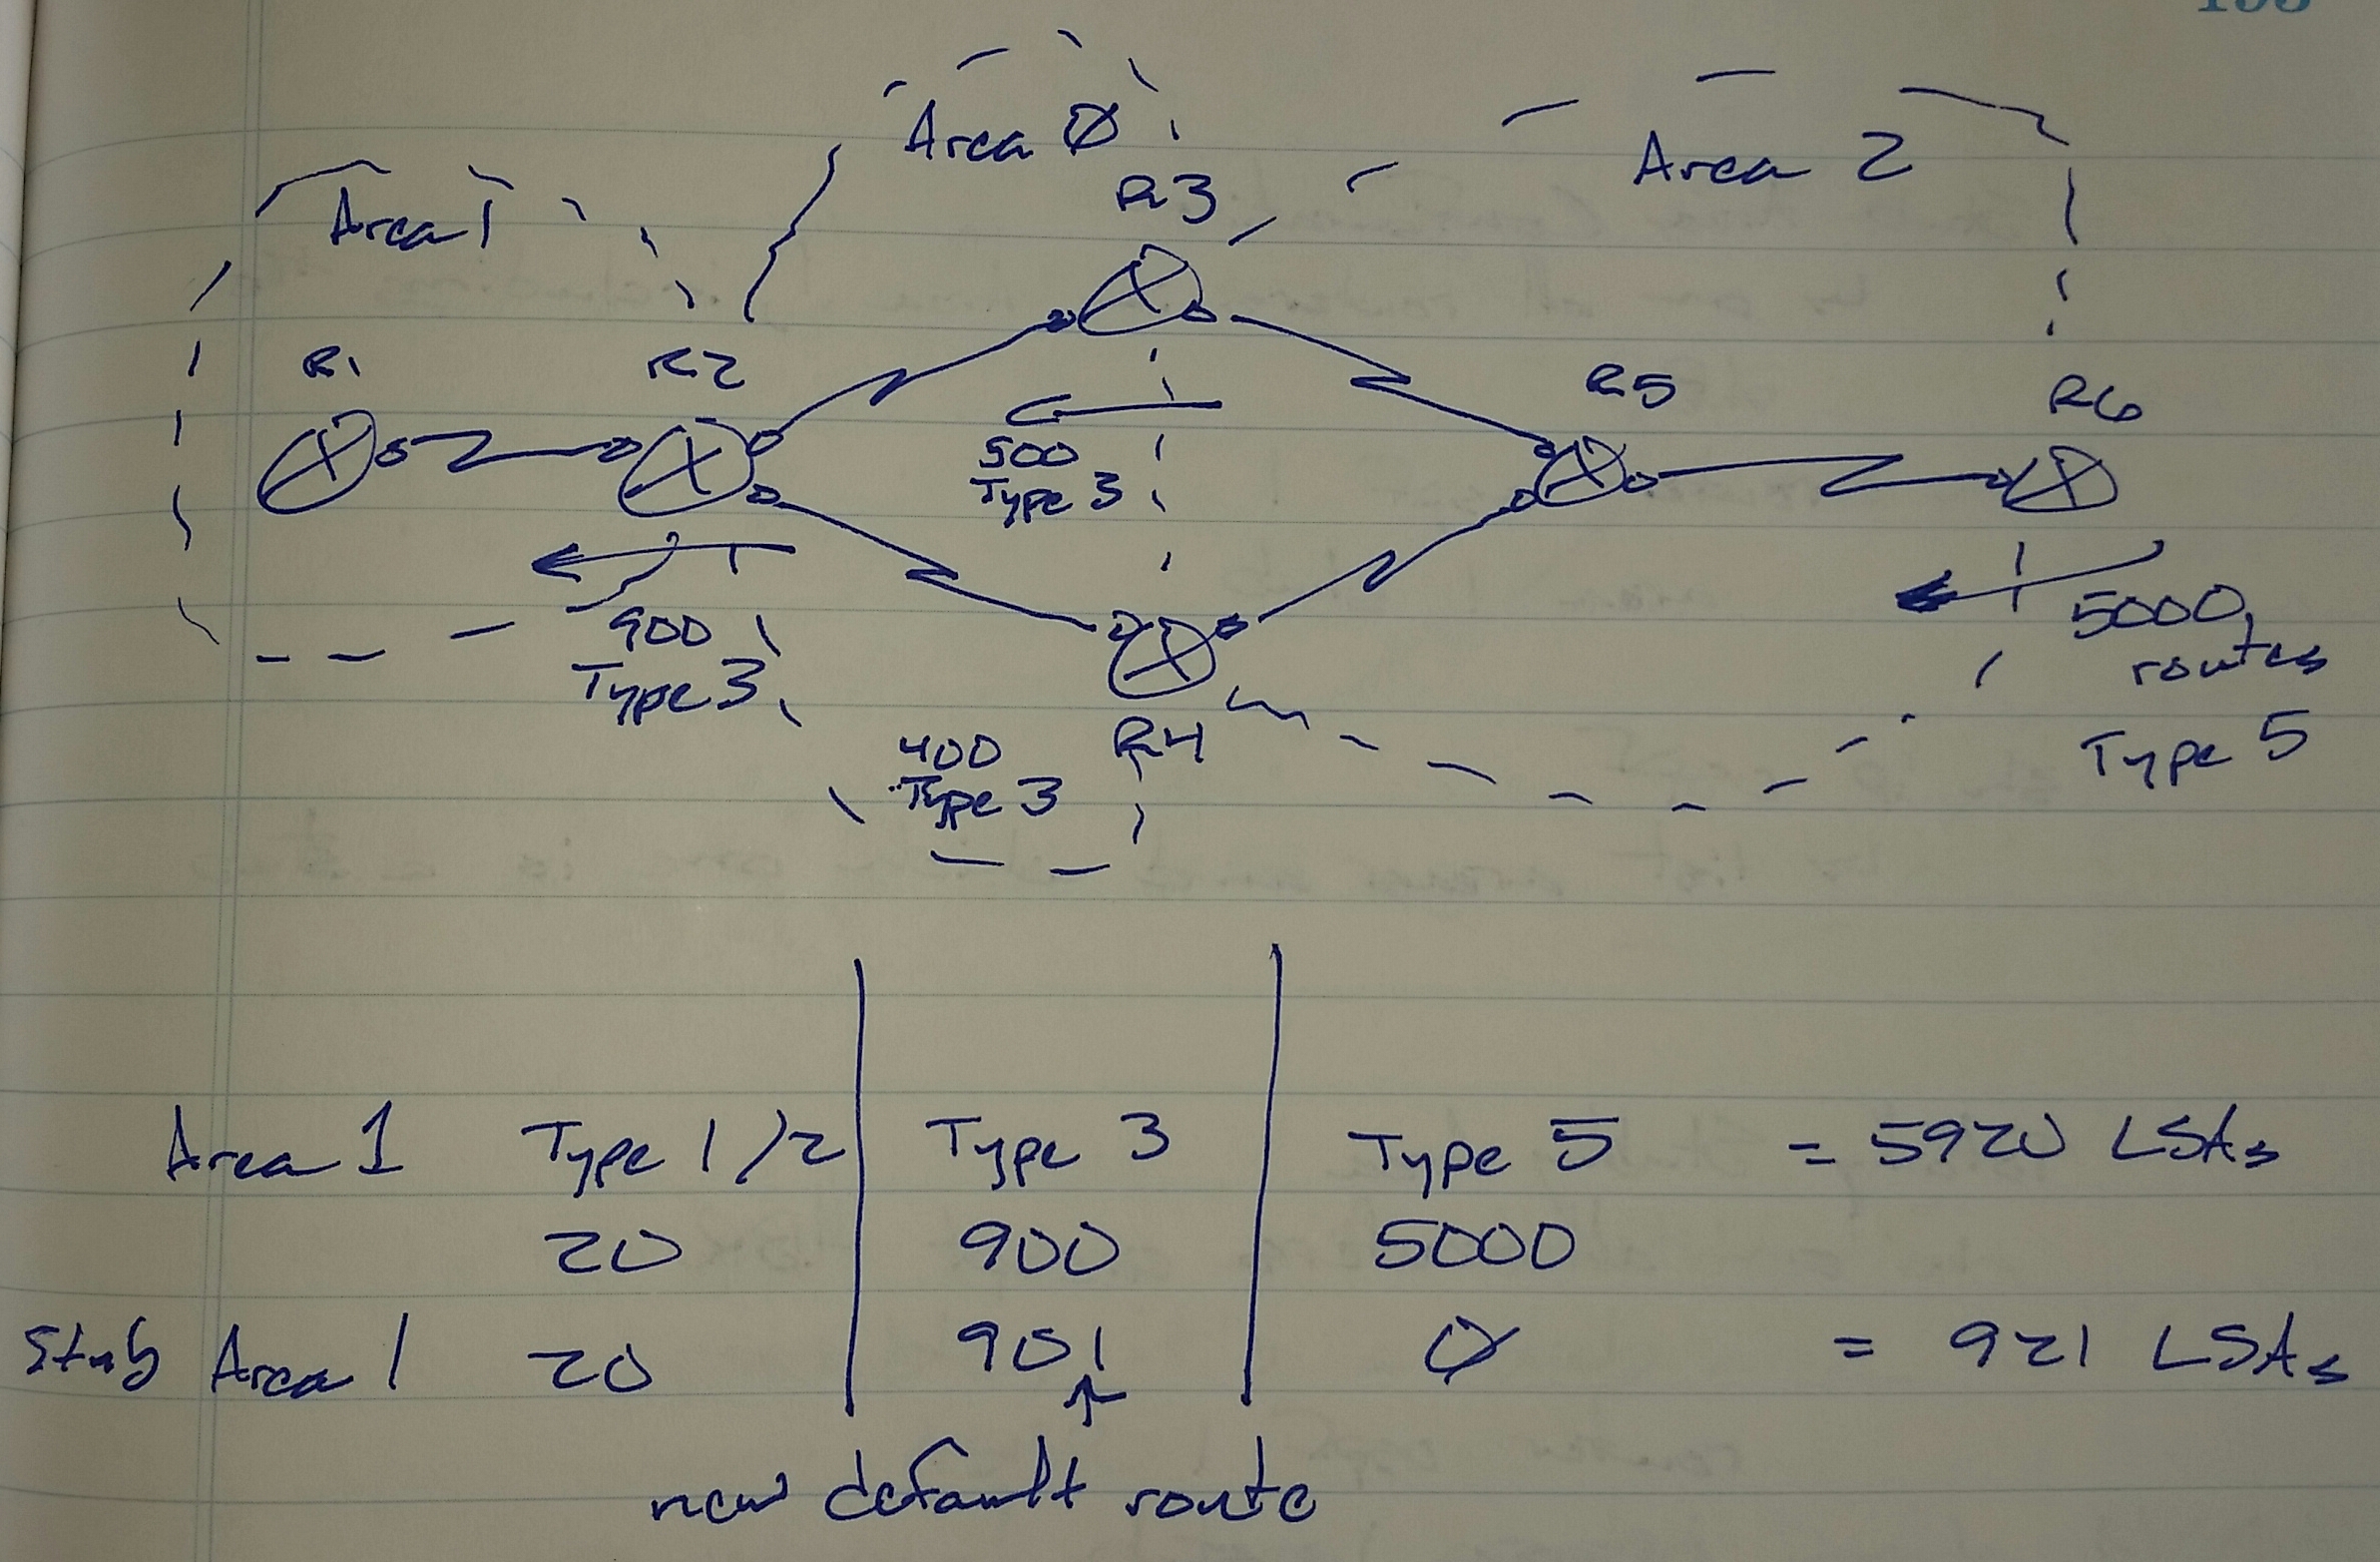 Area 0
Area 1
Area 2
R3
R1
R2
R5
R6
500
Type 3
900
Type 3
5000
routes
Type 5
R4
400
Type 3
Area 1 Type 1/2 Type 3 Type 5 = 5920 LSAs
20 900 5000
Stub Area 1 20 901 0 = 921 LSAs
new default route